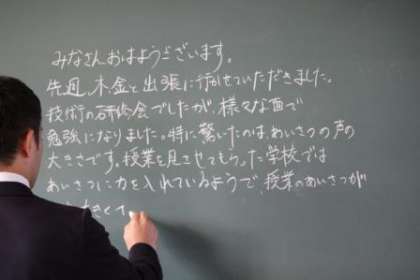 みなさんおはようございます。
先週、木金と出張に行かせていただきました。
技術の研修会でしたが、様々な面で
勉強になりました。特に驚いたのは、あいさつの声の
大きさです。授業を見させてもらった学校では
あいさつに力を入れているようで、授業のあいさつが
大きくて